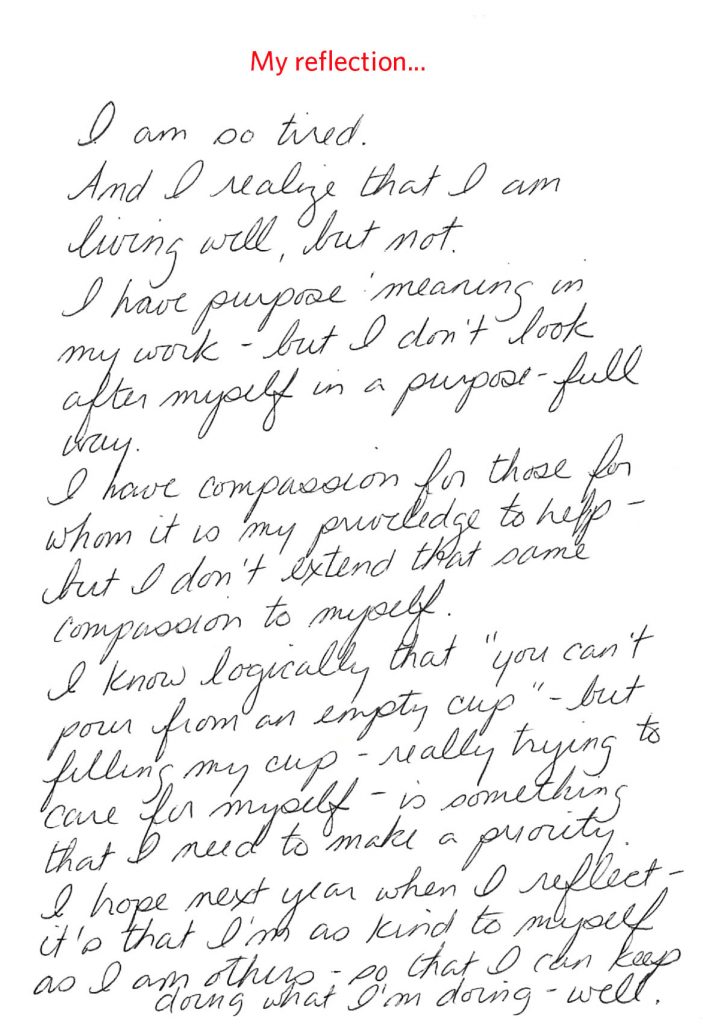 My reflection...
I am so tired.
And I realize that I am
living well, but not.
I have purpose meaning in
my work - but I don't look
after myself in a purpose-full
way.
I have compassion for those for
whom it is my priviledge to help -
but I don't extend that same
compassion to myself.
I know logically that "you can't
pour from an empty cup" - but
filling my cup - really trying to
care for myself - is something
that I need to make a priority.
I hope next year when I reflect -
it's that I'm as kind to myself
as I am others - so that I can keep
doing what I'm doing - well.